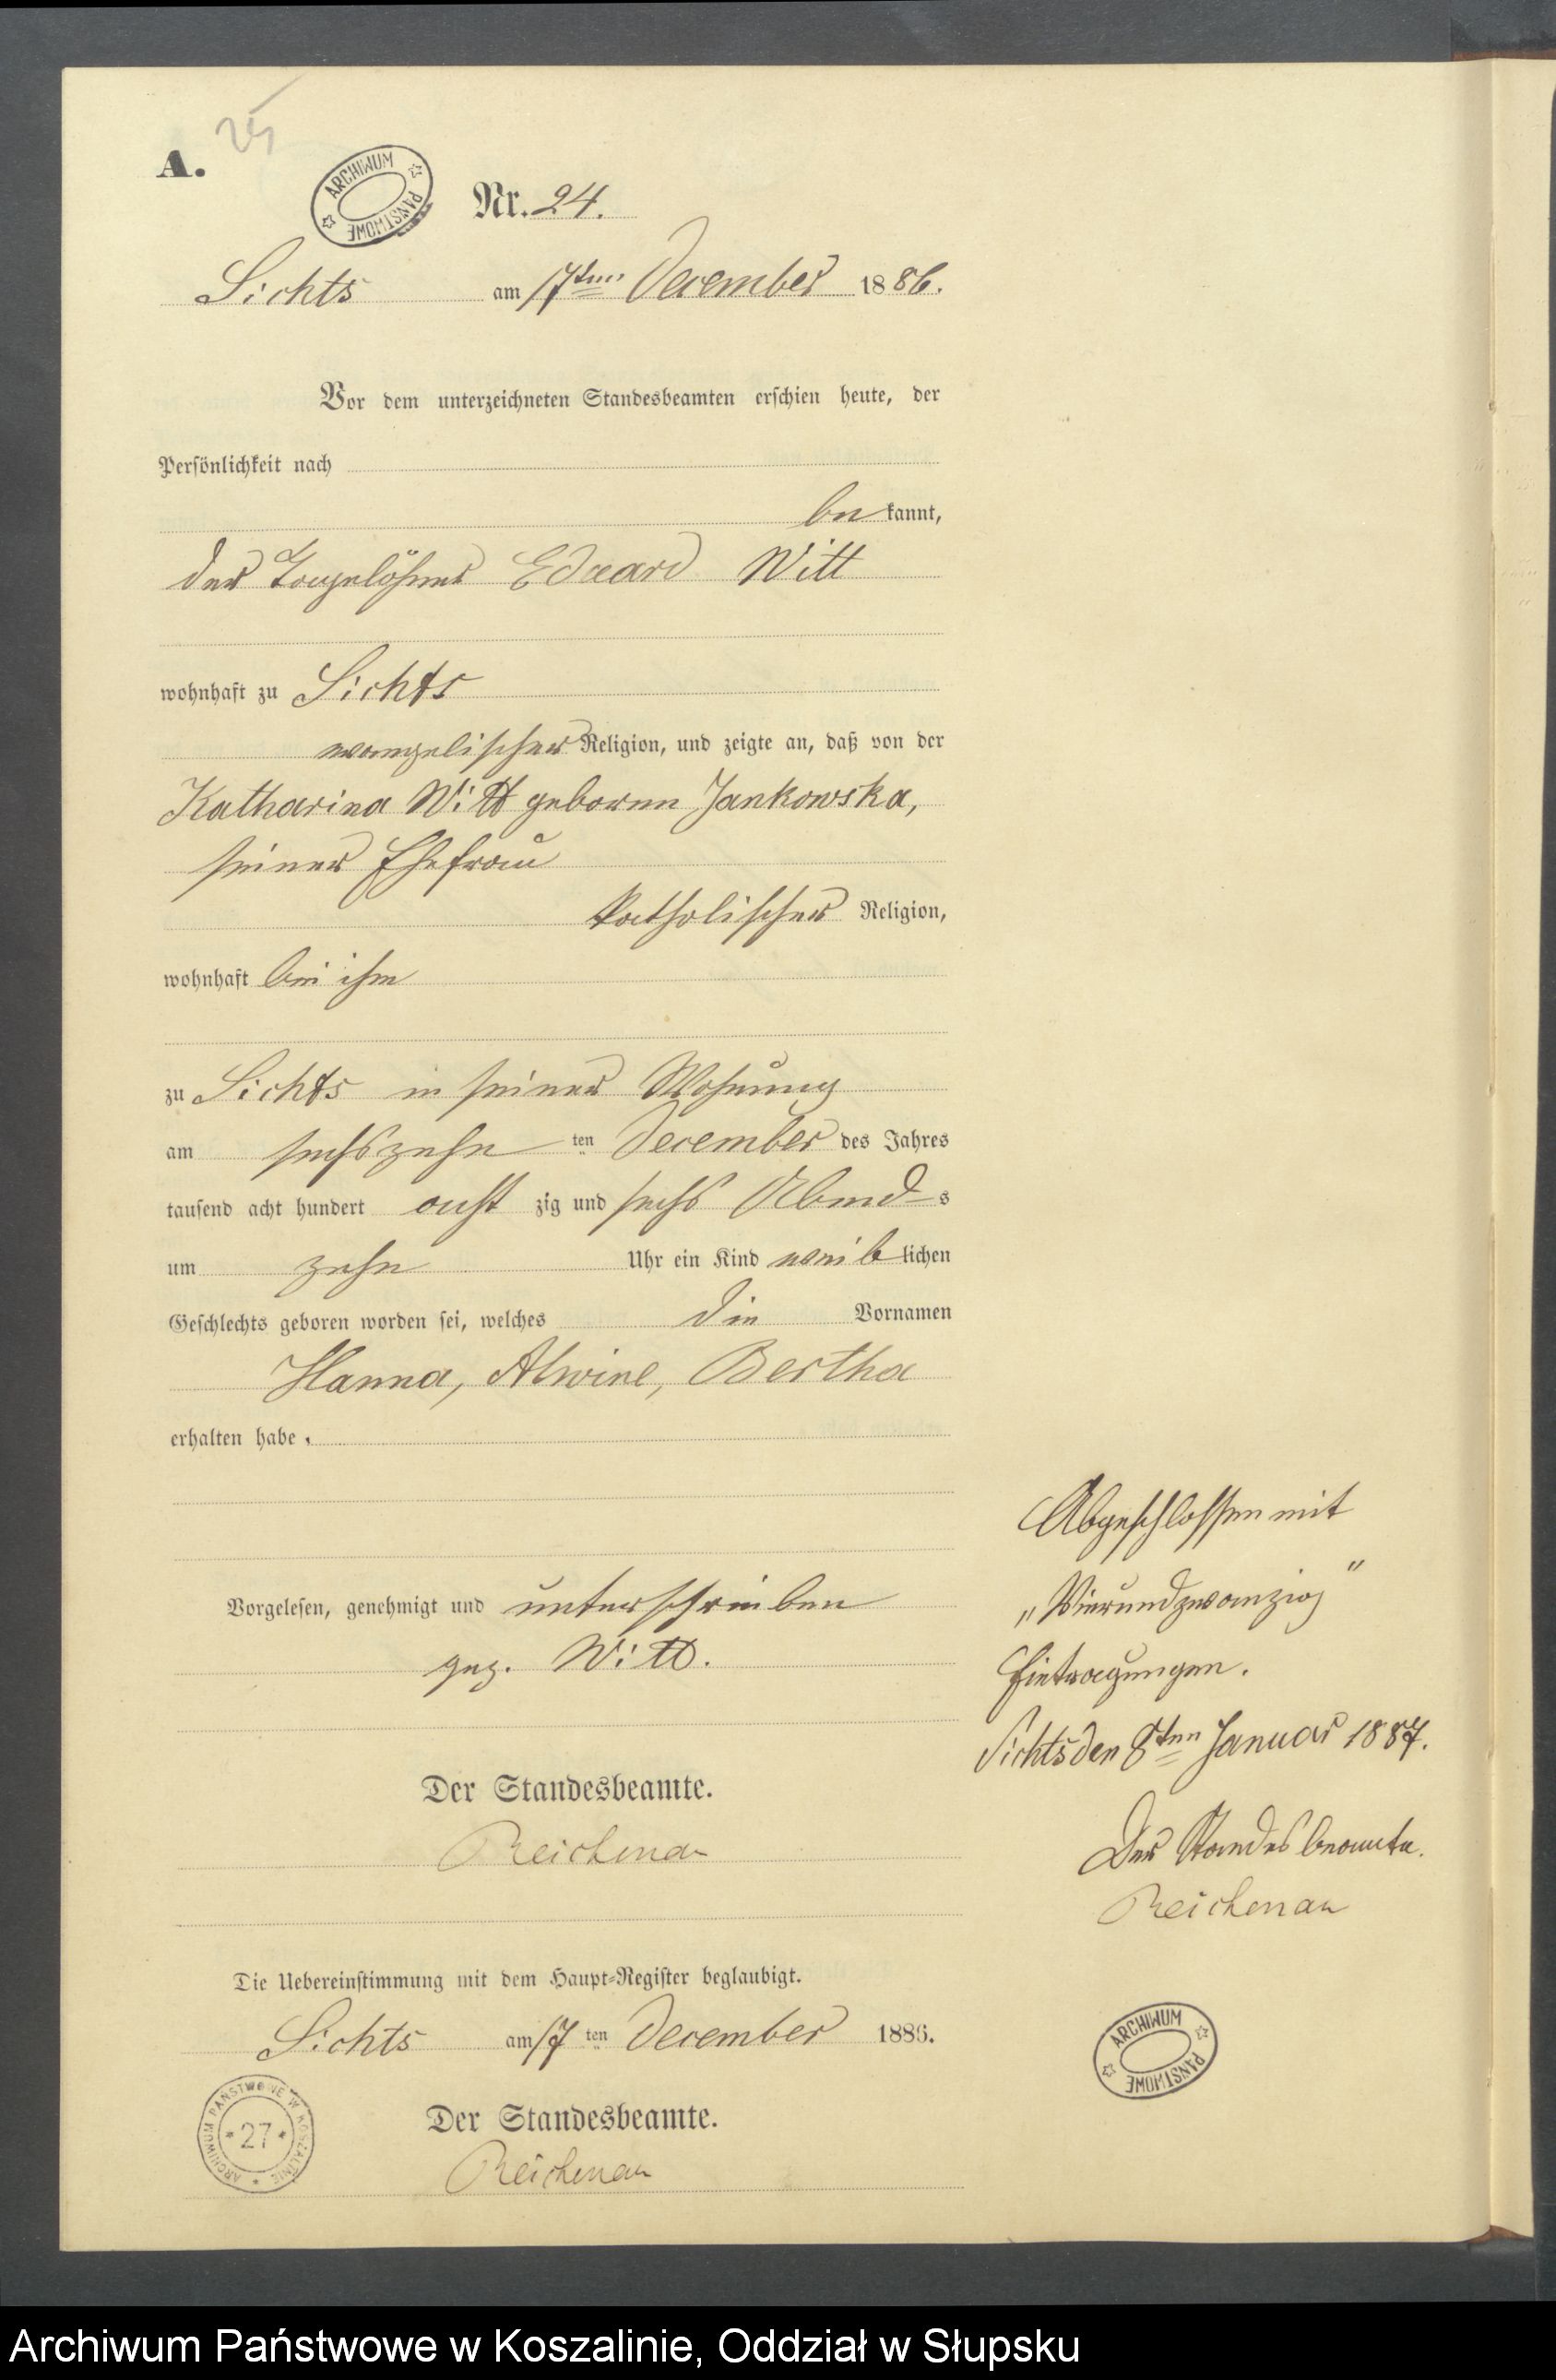 A.
25
ARCHIWUM PAŃSTWOWE
Nr. 24.
Sichts am 17ten December 1886.
Vor dem unterzeichneten Standesbeamten erschien heute, der
Persönlichkeit nach
bekannt,
der Tagelöhner Eduard Witt
wohnhaft zu Sichts
evangelischer Religion, und zeigte an, daß von der
Katharina Witt geboren Jankowska,
seiner Ehefrau
katholischer Religion,
wohnhaft bei ihm
zu Sichts in seiner Wohnung
am sechszehnten December des Jahres
tausend acht hundert achtzig und sechs Abends
um zehn Uhr ein Kind weiblichen
Geschlechts geboren worden sei, welches die Vornamen
Hanna, Alwine, Bertha
erhalten habe.
Vorgelesen, genehmigt und unterschrieben
gez. Witt.
Der Standesbeamte.
Reichenau
Die Uebereinstimmung mit dem Haupt-Register beglaubigt.
Sichts am 17ten December 1886.
Der Standesbeamte.
Reichenau
ARCHIWUM PAŃSTWOWE W KOSZALINIE
27
Abgeschlossen mit
„Vierundzwanzig"
Eintragungen.
Sichts den 8ten Januar 1887.
Der Standesbeamte.
Reichenau
ARCHIWUM PAŃSTWOWE
Archiwum Państwowe w Koszalinie, Oddział w Słupsku